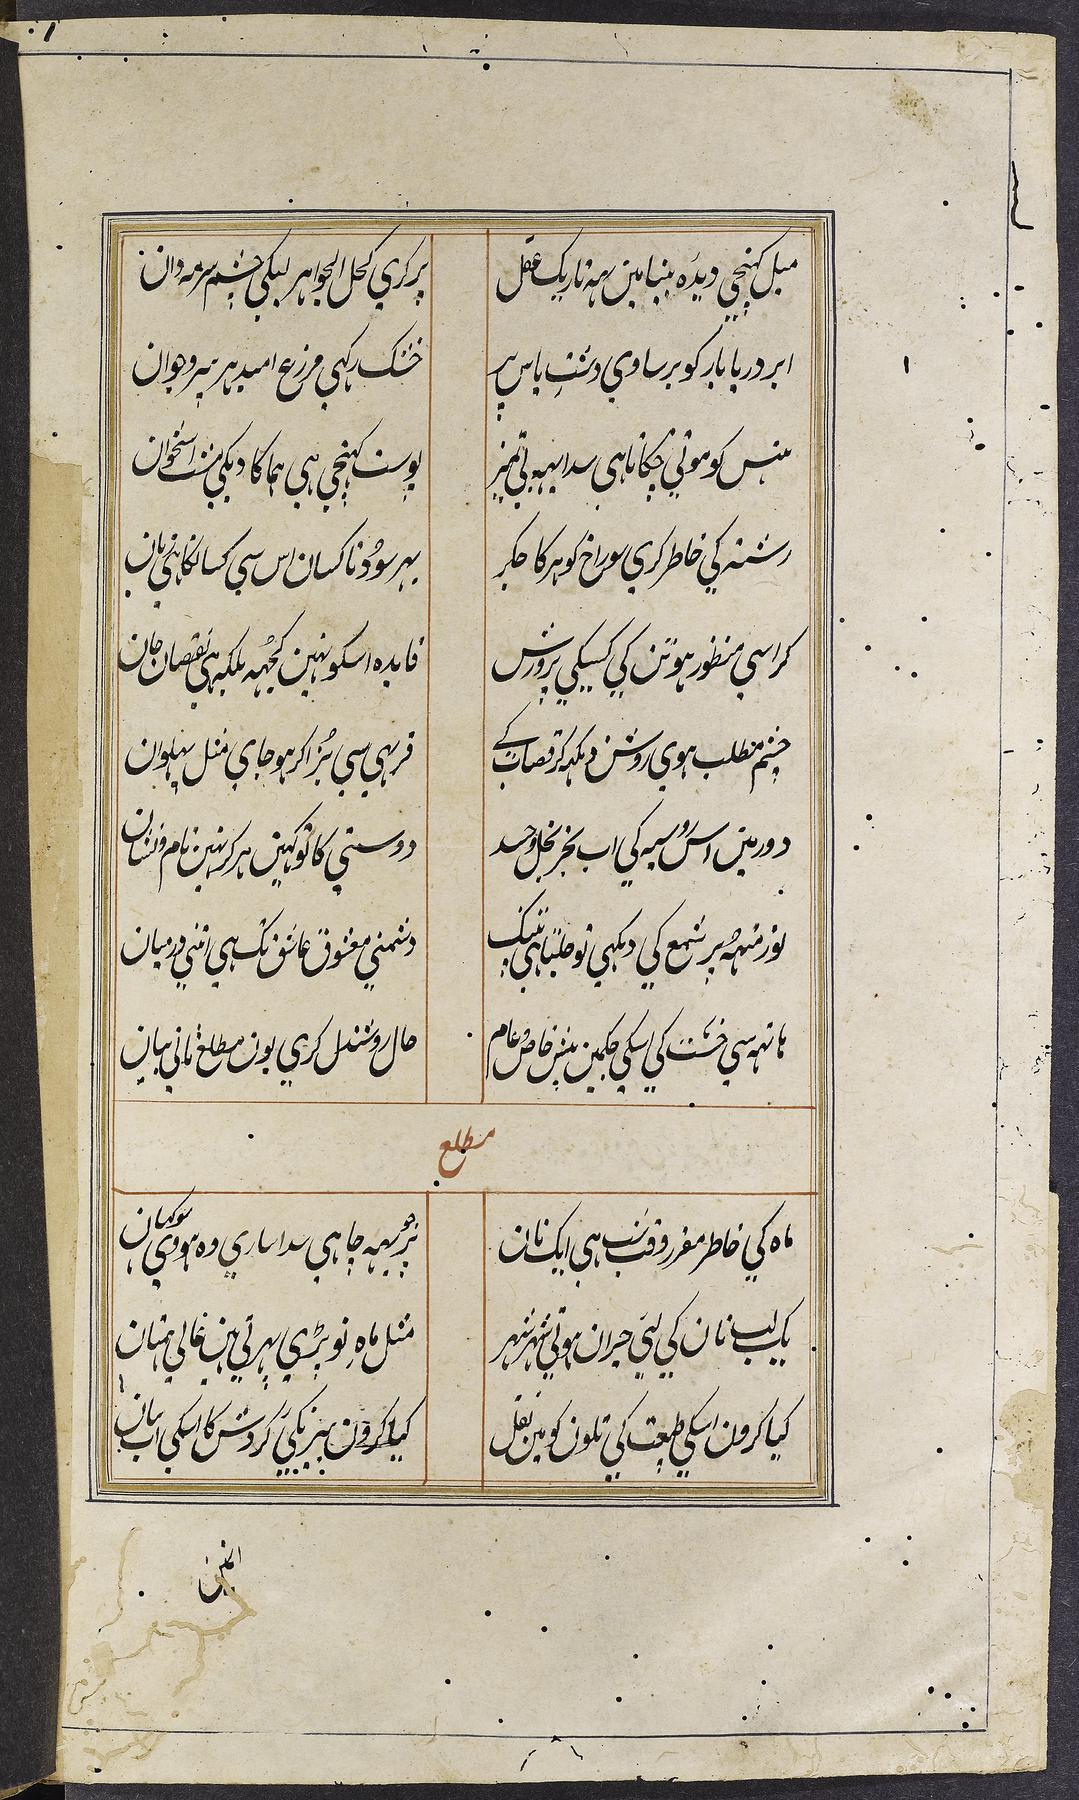 میل کهنچی دیدہ بینا مین یہہ تاریک عقل
پر کری کحل الجواہر لیکی چشم سرمہ دان
ابر دریا بار کو برساوی دشت یاس پر
خشک رکهی مزرع امید ہر پیر و جوان
ہنس کو موتی چکاتا ہی سدا یہہ بی تمیز
پوست کهنچی ہی ہما کا دیکی مشت استخوان
رشتہ کی خاطر کری سوراخ کوہر کا جکر
بہر سود ناکسان اس سی کسان کا ہی زیان
کر اسی منظور ہو تن کی کسیکی پرورش
فایدہ اسکو نہین کچہہ بلکہ ہی نقصان جان
چشم مطلب ہوی روشن دیکہہ کر قصاب کے
فربہی سی بُز اکر ہو جای مثل پہلوان
دور مین اس رو سیہ کی اب بجز بخل و حسد
دوستی کا تو کہین ہرکز نہین نام و نشان
نور منہہ پر شمع کی دیکہی تو جلتا ہی پتنک
دشمنی معشوق عاشق تک ہی اتنی درمیان
ہاتهہ سی خست کی اسکی جکمین پیش خاص و عام
حال روشندل کری یون مطلع ثانی بیان
مطلع
ماہ کی خاطر مقرر وقت شب ہی ایک نان
پر جو یہہ چاہی سدا ساری وہ ہووی سو کہان
یک لب نان کی لئی حیران ہوتی شہر شہر
مثل ماہ نو پڑی پہرتی ہین عالی ہمتان
کیا کرون اسکی طبیعت کی تلون کو مین نقل
کیا کرون نیرنکی کردش کا اسکی اب بیان